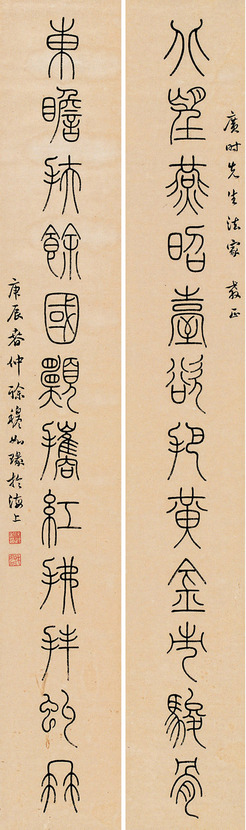 廣时先生法家 教正
北望燕昭臺欲把黃金市駿骨
東瞻扶餘國願攜紅拂拜虯髯
庚辰春仲徐穆如篆於海上